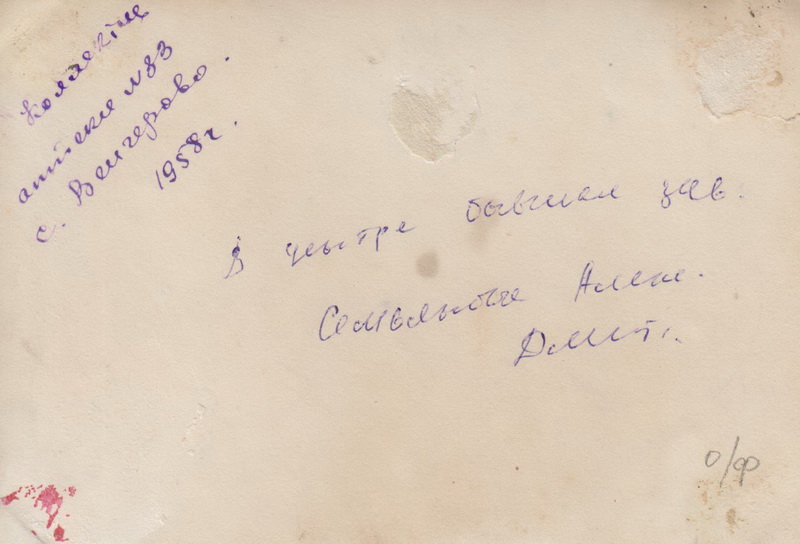 Коллектив
аптеки N 83
с. Венгерово.
1958 г.
В центре бывшая зав.
Семьянова Алек.
Дмит.
о/ф